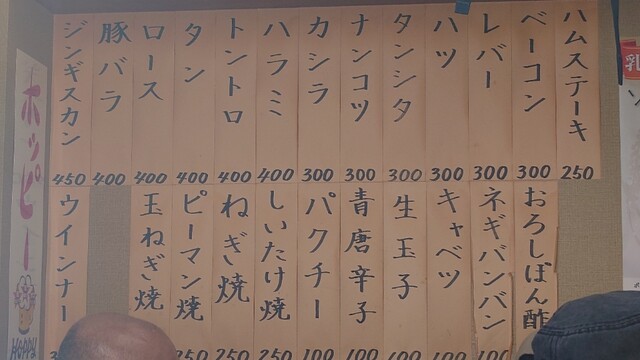 ハムステーキ 250
ベーコン 300
レバー 300
ハツ 300
タンシタ 300
ナンコツ 300
カシラ 300
ハラミ 400
トントロ 400
タン 400
ロース 400
豚バラ 400
ジンギスカン 450
おろしぽん酢
ネギバンバン
キャベツ
生玉子
青唐辛子 100
パクチー 100
しいたけ焼 250
ねぎ焼 250
ピーマン焼
玉ねぎ焼
ウインナー
ホッピー
HAPPY
乳